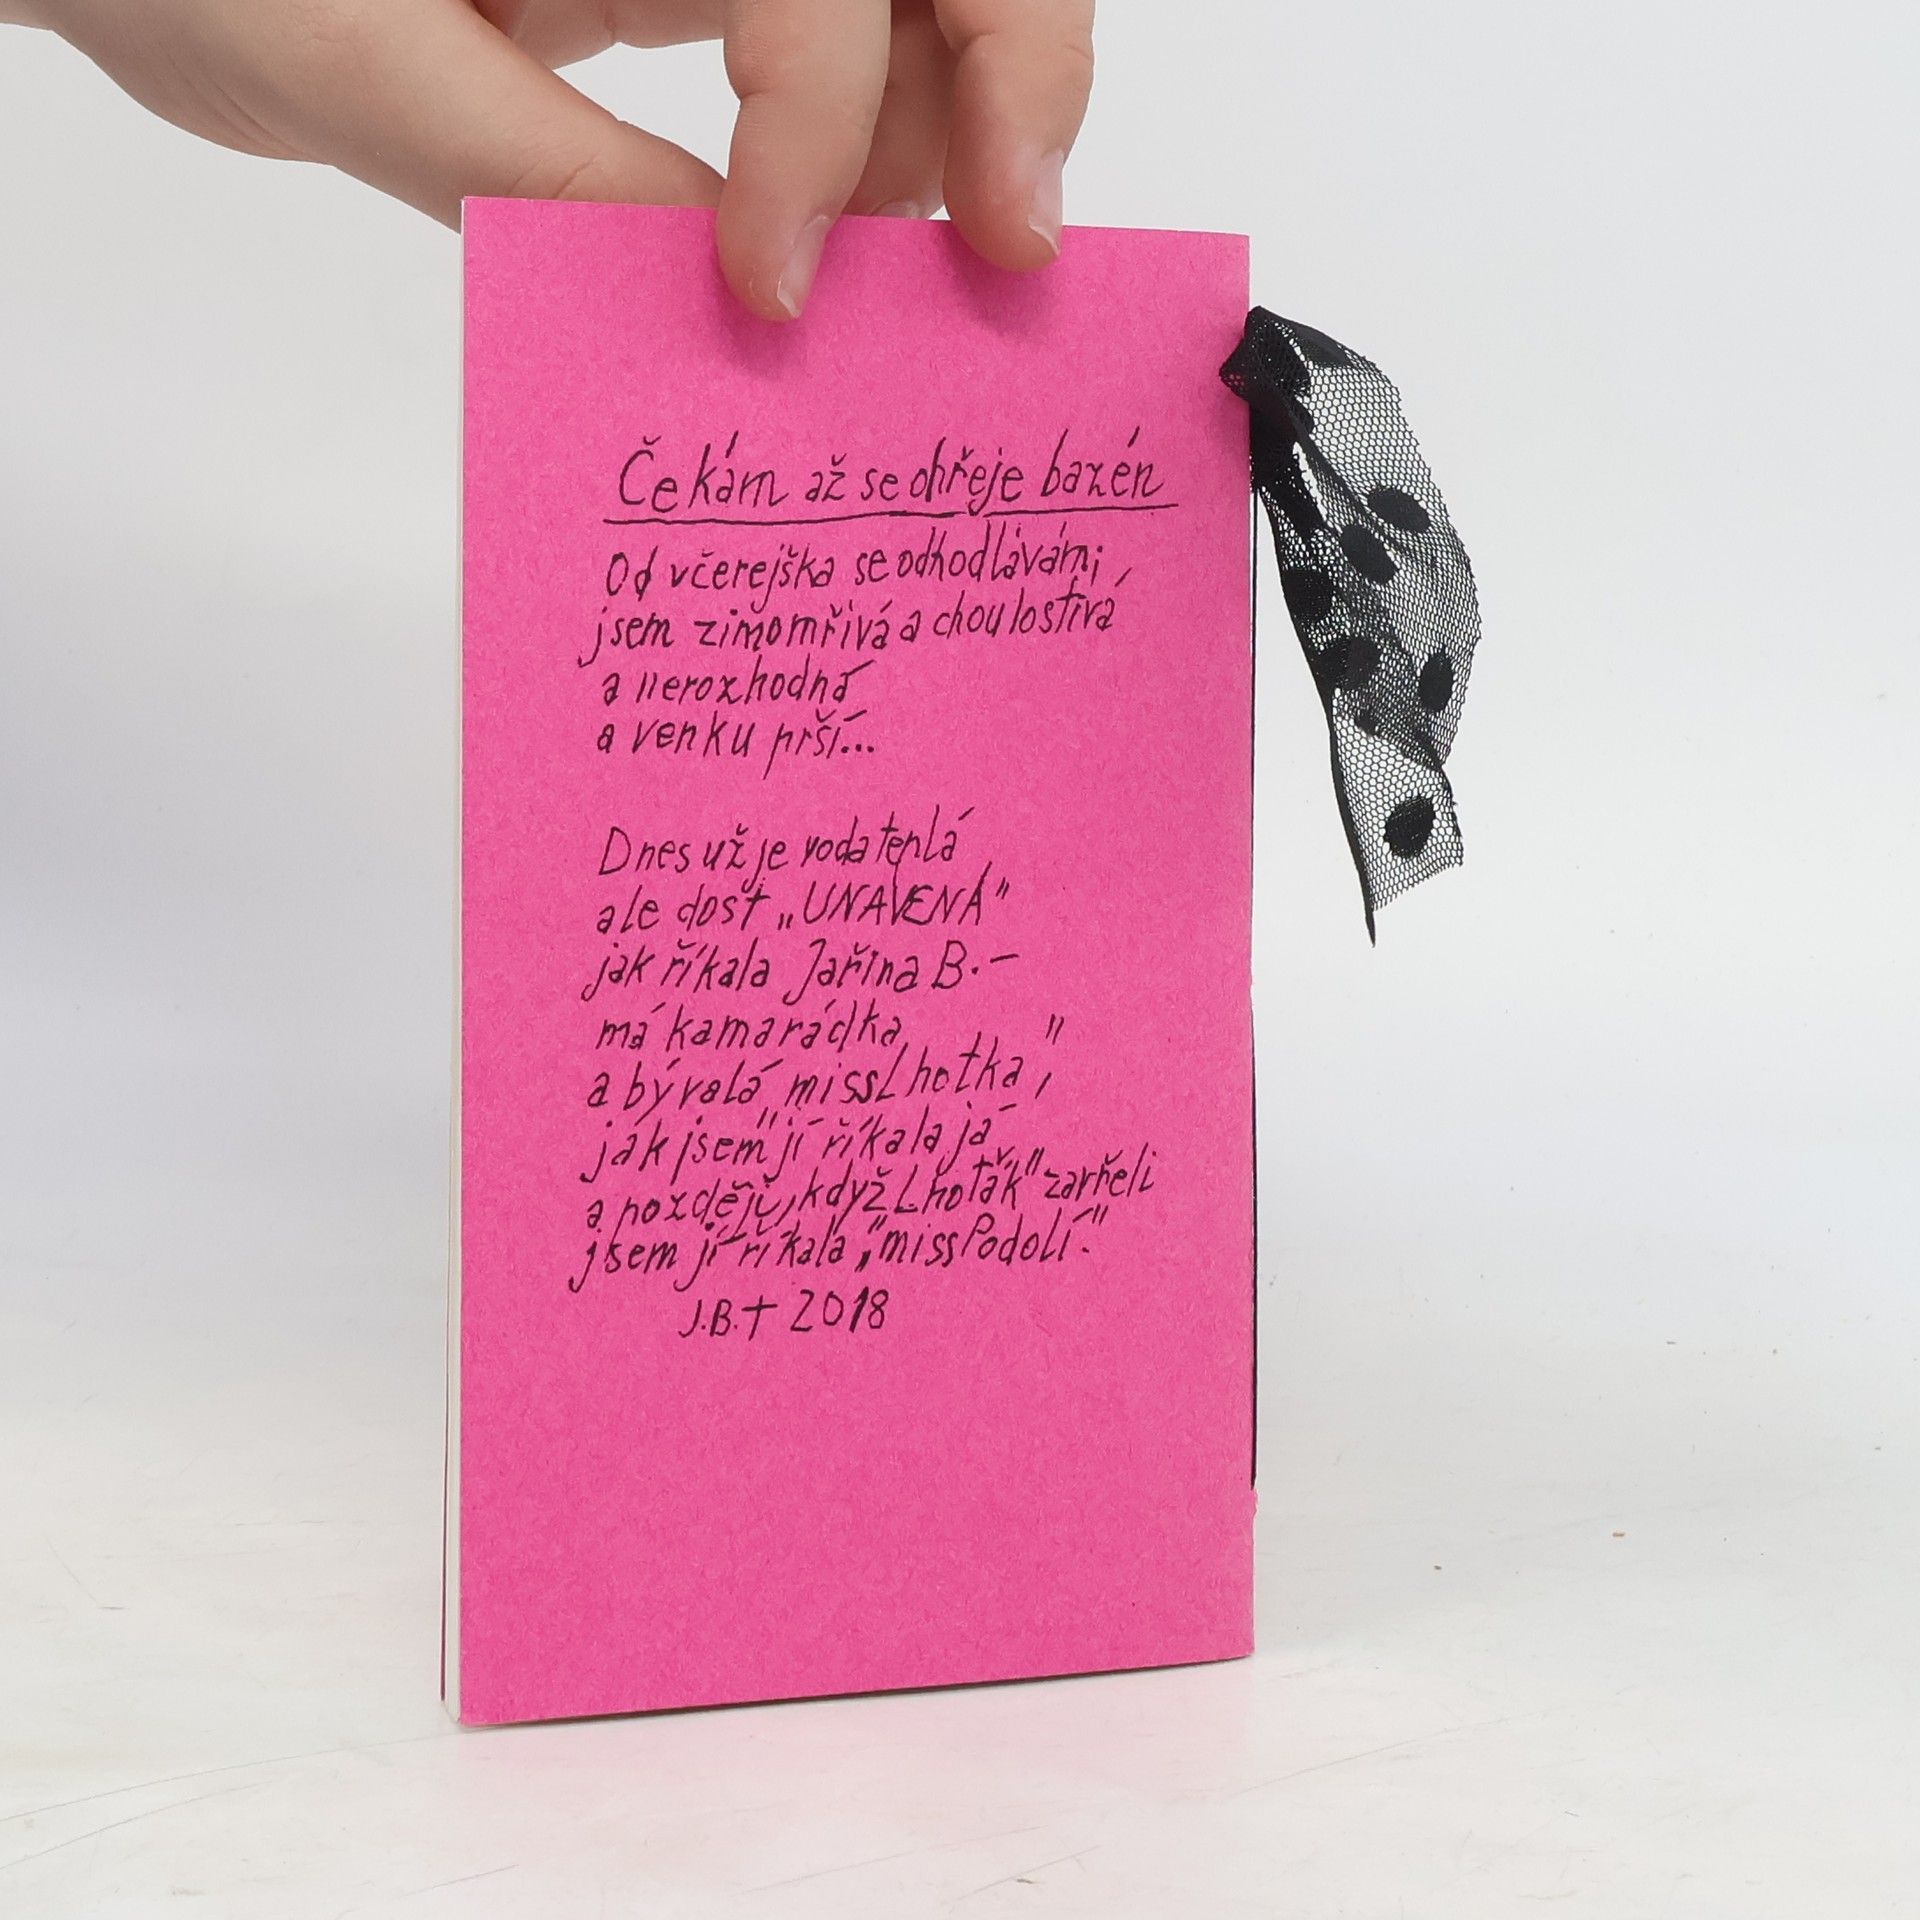 Čekám až se ohřeje bazén
Od včerejška se odhodlávám,
jsem zimomřivá a choulostivá
a nerozhodná
a venku prší...
Dnes už je voda teplá
ale dost „UNAVENÁ"
jak říkala Jařina B. –
má kamarádka
a bývalá „missLhotka",
jak jsem jí říkala já
a později, když „Lhoťák" zavřeli
jsem jí říkala „missPodolí."
J.B.† 2018